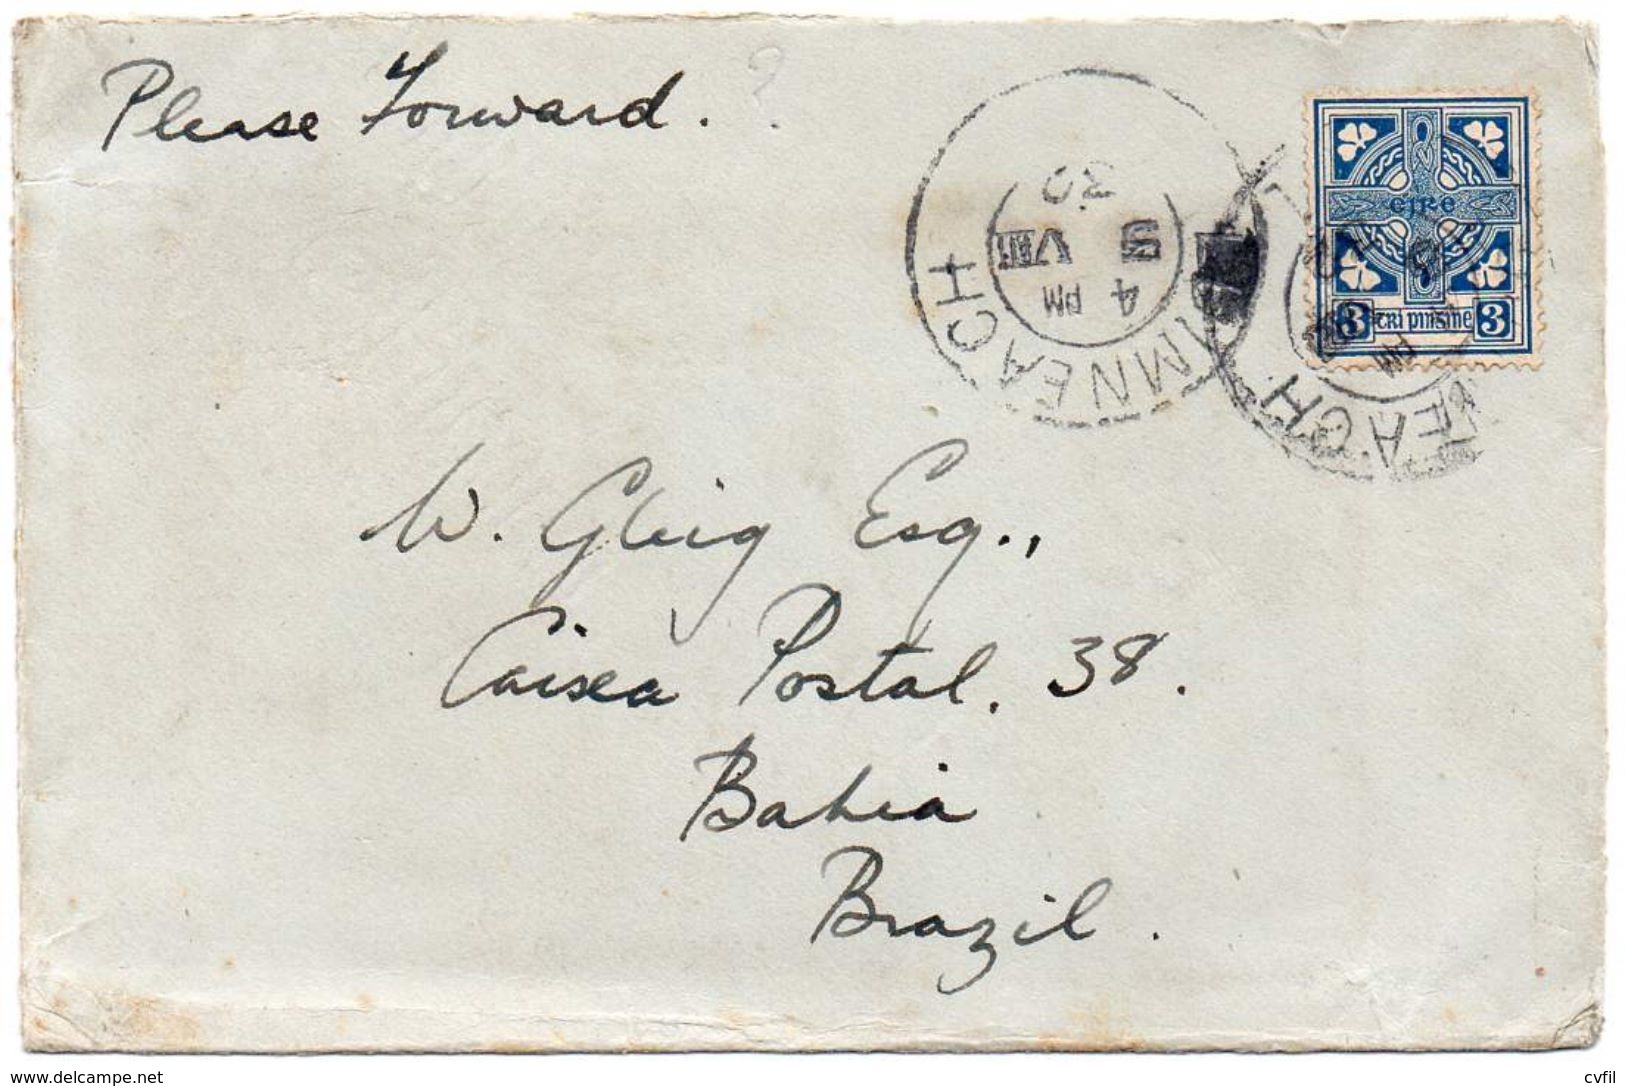 Please Forward. ?
30
5 VIII
4 PM
MNEACH
EIRE
3 TRI PINGINE 3
PM
EACH
W. Gleig Esq.,
Caixa Postal. 38.
Bahia
Brazil.
www.delcampe.net
cvfil